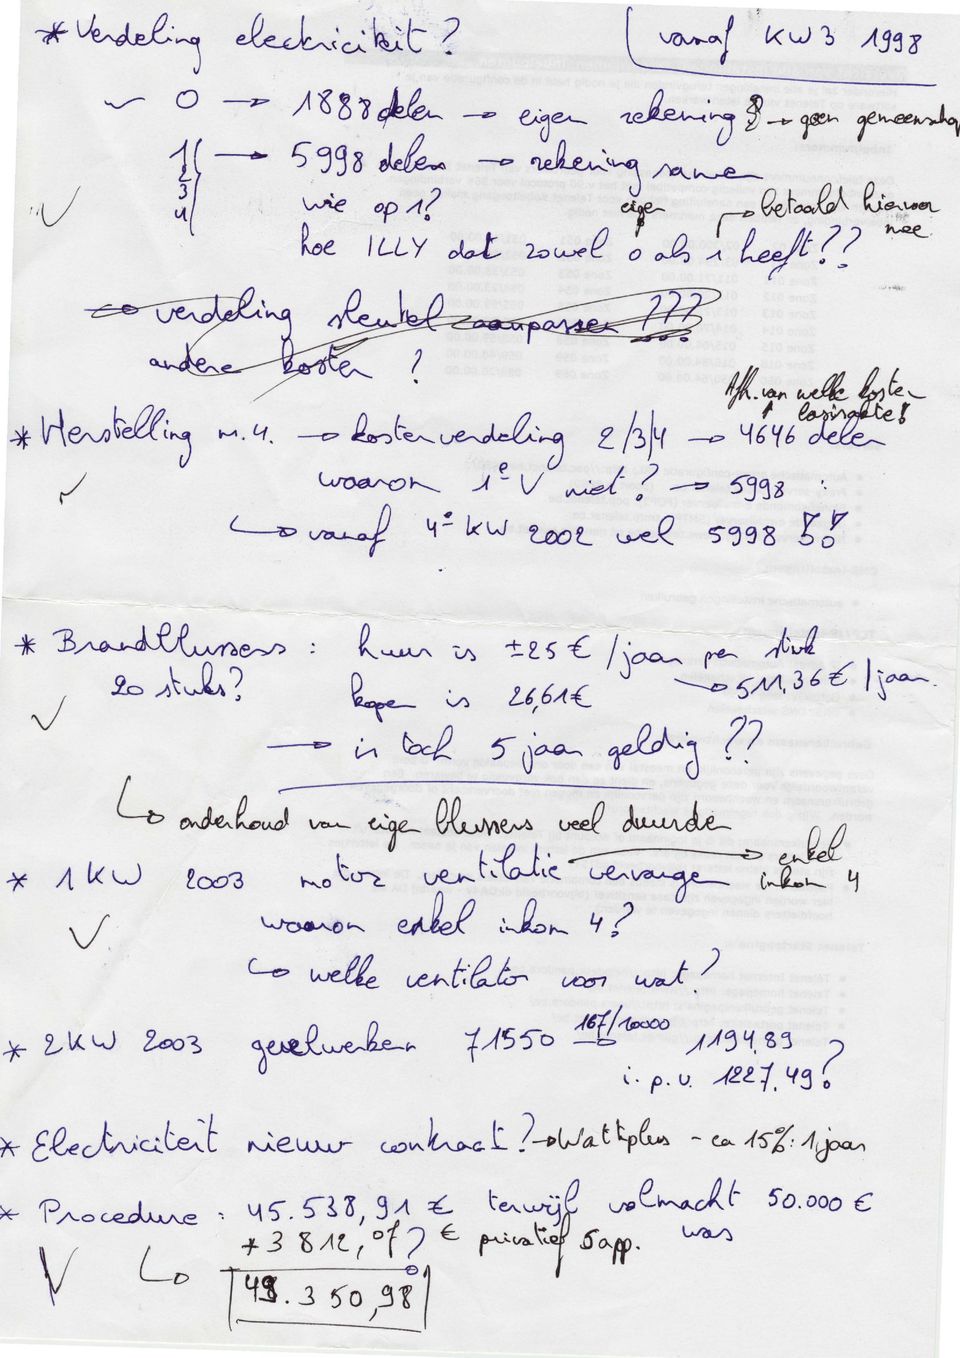 * Verdeling electriciteit? vanaf KW3 1998
0 → 1888 delen → eigen rekening? → geen gemeenschap
1 → 5998 delen → rekening samen
2
3
4 wie op 1? eigen → betaald hiervoor mee
hoe ILLY dat zowel 0 als 1 heeft??
→ verdeling sleutel aanpassen ???
andere kosten ?
Afh. van welke kosten
* Herstelling m.4. → kostenverdeling 2/3/4 → 4646 delen
waarom 1e V niet? → 5998 :
↳ vanaf 4e KW 2002 wel 5998 !!
* Brandblussers : huur is ±25 € /jaar per stuk
20 stuks? kopen is 26,61€ → 511,36 € /jaar.
→ is toch 5 jaar geldig ??
↳ onderhoud van eigen blussers veel duurder
* 1 KW 2003 motor ventilatie vervangen → enkel inkom 4
waarom enkel inkom 4?
↳ welke ventilator voor wat?
* 2KW 2003 gevelwerken 71550 167/10000 → 1194,89
i.p.v. 1227,49?
* Electriciteit nieuw contract? → Wattplus - ca 15%: 1 jaar
* Procedure : 45.538,91 € terwijl volmacht 50.000 €
+ 3 812,07 € privatief 5 app. was
↳ 49.350,98